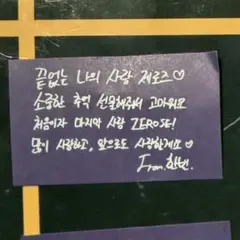 끝없는 나의 사랑 제로즈♡
소중한 추억 선물해줘서 고마워요
처음이자 마지막 사랑 ZEROSE!
많이 사랑하고, 앞으로도 사랑할게요♡
From. 한빈.